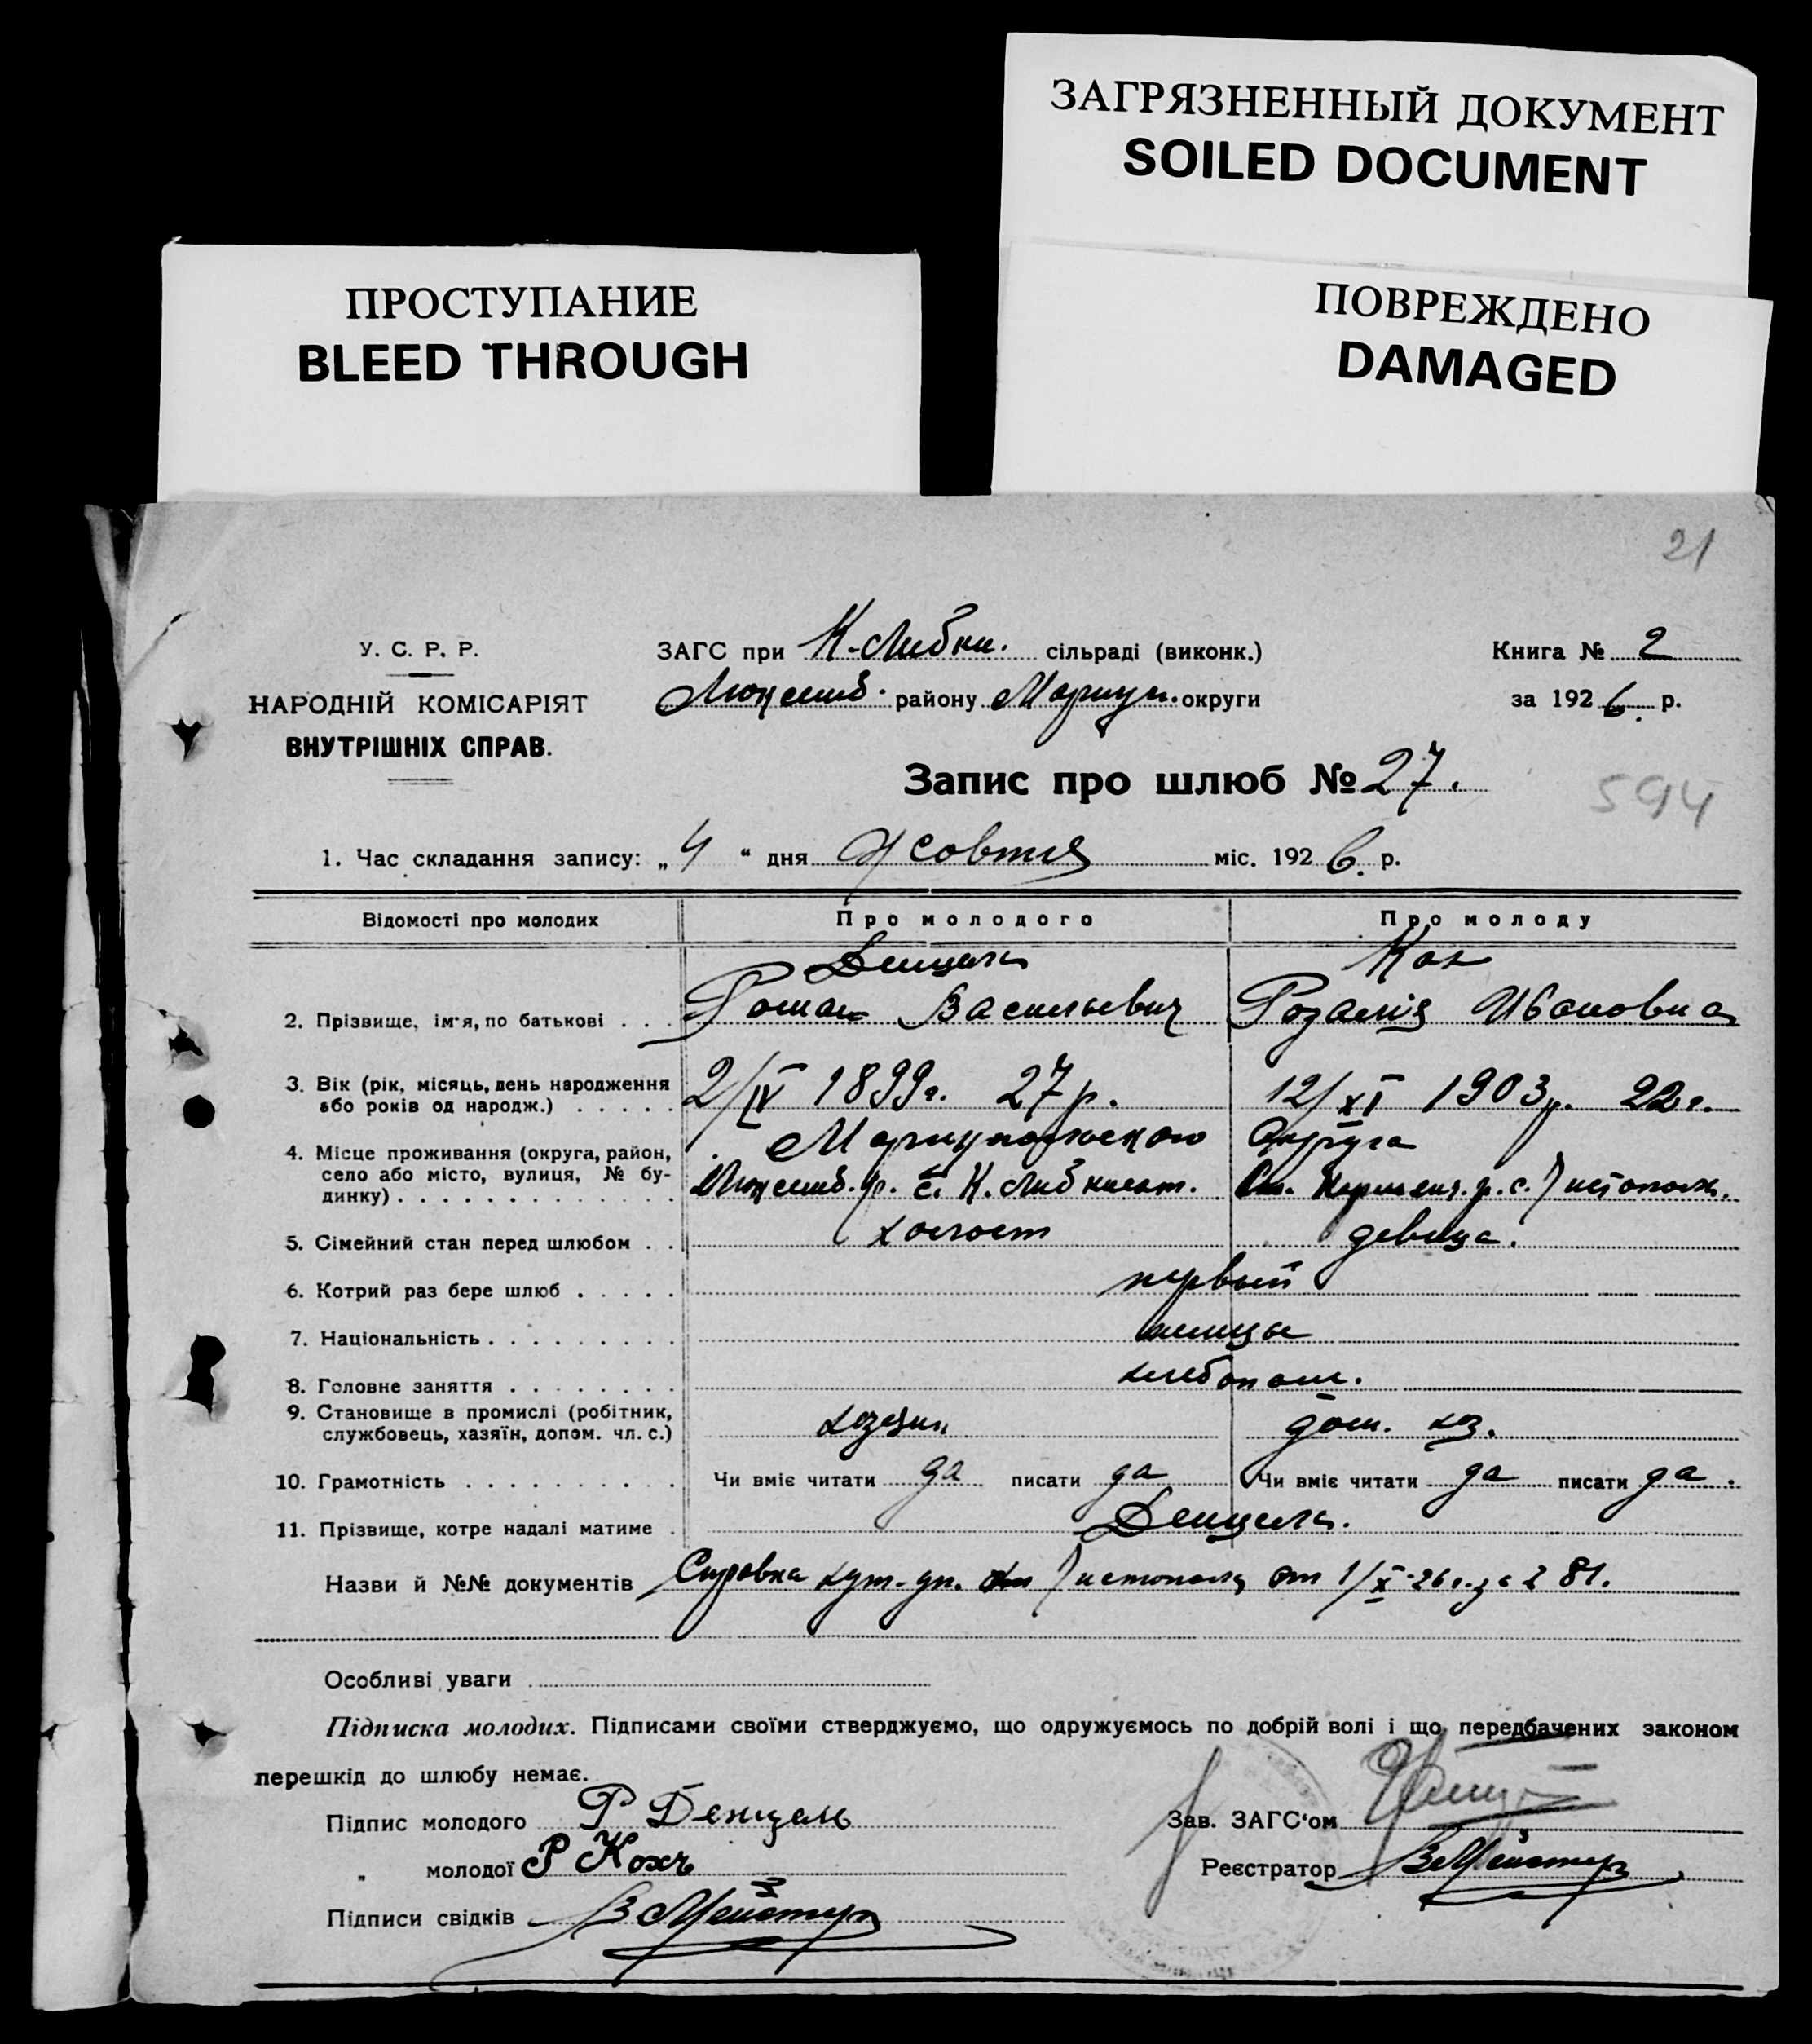 ЗАГРЯЗНЕННЫЙ ДОКУМЕНТ
SOILED DOCUMENT
ПРОСТУПАНИЕ
BLEED THROUGH
ПОВРЕЖДЕНО
DAMAGED
21
У. С. Р. Р.
НАРОДНІЙ КОМІСАРІЯТ
ВНУТРІШНІХ СПРАВ.
ЗАГС при К-Либкн. сільраді (виконк.)
Люксемб. району Мариуп. округи
Книга № 2
за 1926. р.
Запис про шлюб № 27.
594
1. Час складання запису: „4“ дня Жовтня міс. 1926. р.
Відомості про молодих Про молодого Про молоду
Денцель Кох
2. Прізвище, ім'я, по батькові . . . Роман Васильевич Розалія Ивановна
3. Вік (рік, місяць, день народження або років од народж.) . . . . . 2/IV 1899г. 27р. 12/XI 1903р. 22г.
Мариупольского Округа
4. Місце проживання (округа, район, село або місто, вулиця, № будинку) . . . . . . . . . . . . . Люксемб. р. с. К. Либкнехт. Ст. Керменч. р. с. Тистополь.
5. Сімейний стан перед шлюбом . . холост девица.
6. Котрий раз бере шлюб . . . . . первый
7. Національність . . . . . . . . . немцы
8. Головне заняття . . . . . . . . хлебопаш.
9. Становище в промислі (робітник, службовець, хазяїн, допом. чл. с.) хозяин дом. хоз.
10. Грамотність . . . . . . . . . . Чи вміє читати да писати да Чи вміє читати да писати да.
11. Прізвище, котре надалі матиме . Денцель.
Назви й №№ документів Справка хут. уп. Тистополь от 1/X-26г. за 281.
Особливі уваги
Підписка молодих. Підписами своїми стверджуємо, що одружуємось по добрій волі і що передбачених законом
перешкід до шлюбу немає.
Підпис молодого Р Денцель
„ молодої Р Кохъ
Підписи свідків В Мейстер
Зав. ЗАГС'ом
Реєстратор В Мейстер